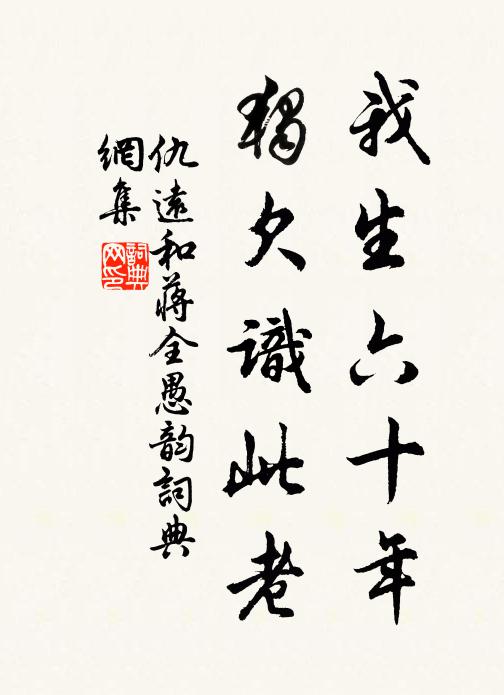 我生六十年
獨欠識此老
仇遠和蔣全愚韵詞典
網集
詞典
网印